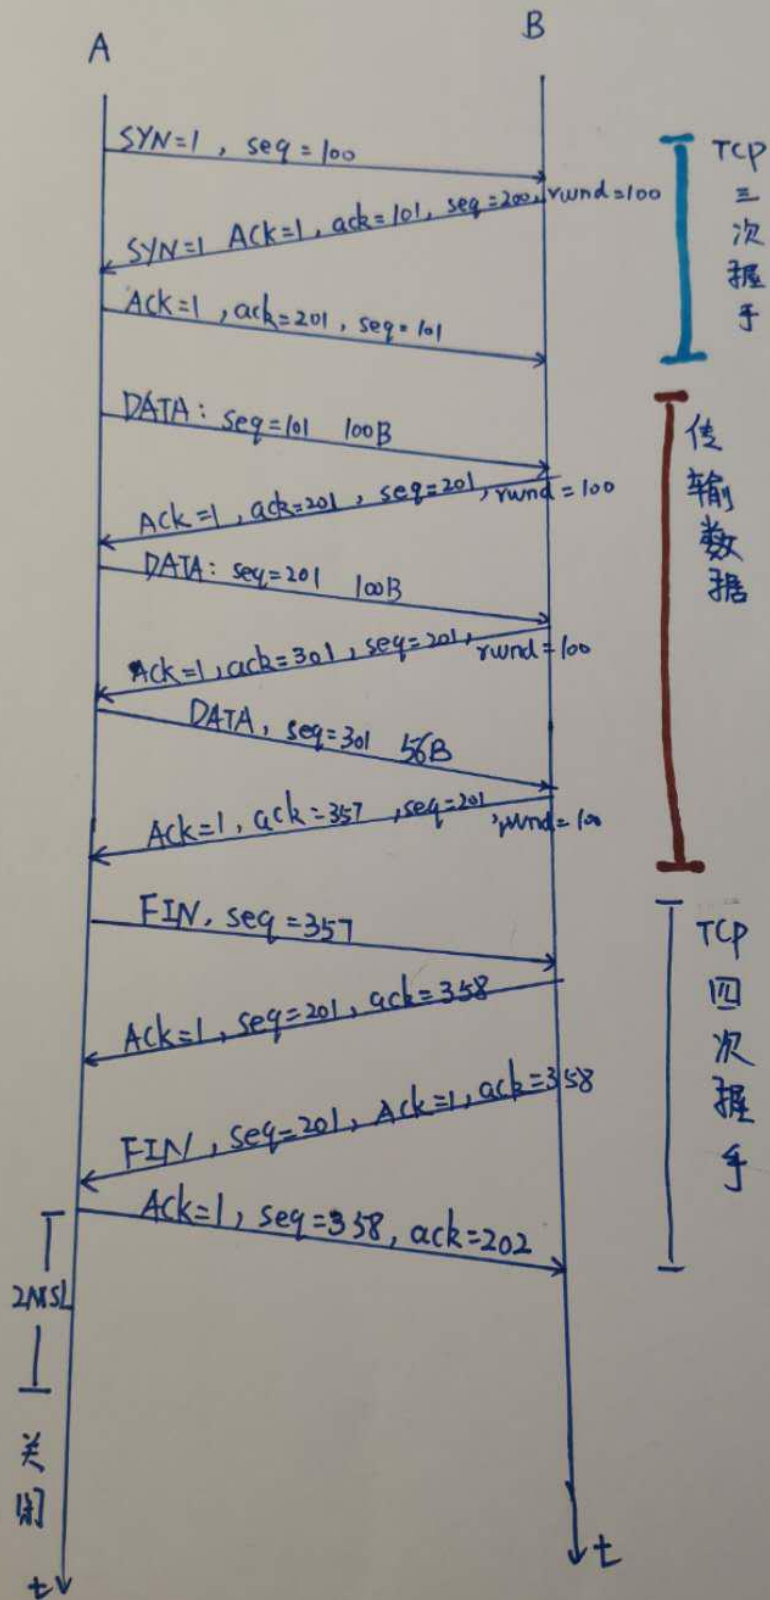 A
B
SYN=1, seq=100
SYN=1 Ack=1, ack=101, seq=200, rwnd=100
Ack=1, ack=201, seq=101
TCP三次握手
DATA: seq=101 100B
Ack=1, ack=201, seq=201, rwnd=100
DATA: seq=201 100B
Ack=1, ack=301, seq=201, rwnd=100
DATA, seq=301 56B
Ack=1, ack=357, seq=201, rwnd=100
传输数据
FIN, seq=357
Ack=1, seq=201, ack=358
FIN, seq=201, Ack=1, ack=358
Ack=1, seq=358, ack=202
TCP四次握手
2MSL
关闭
t
t